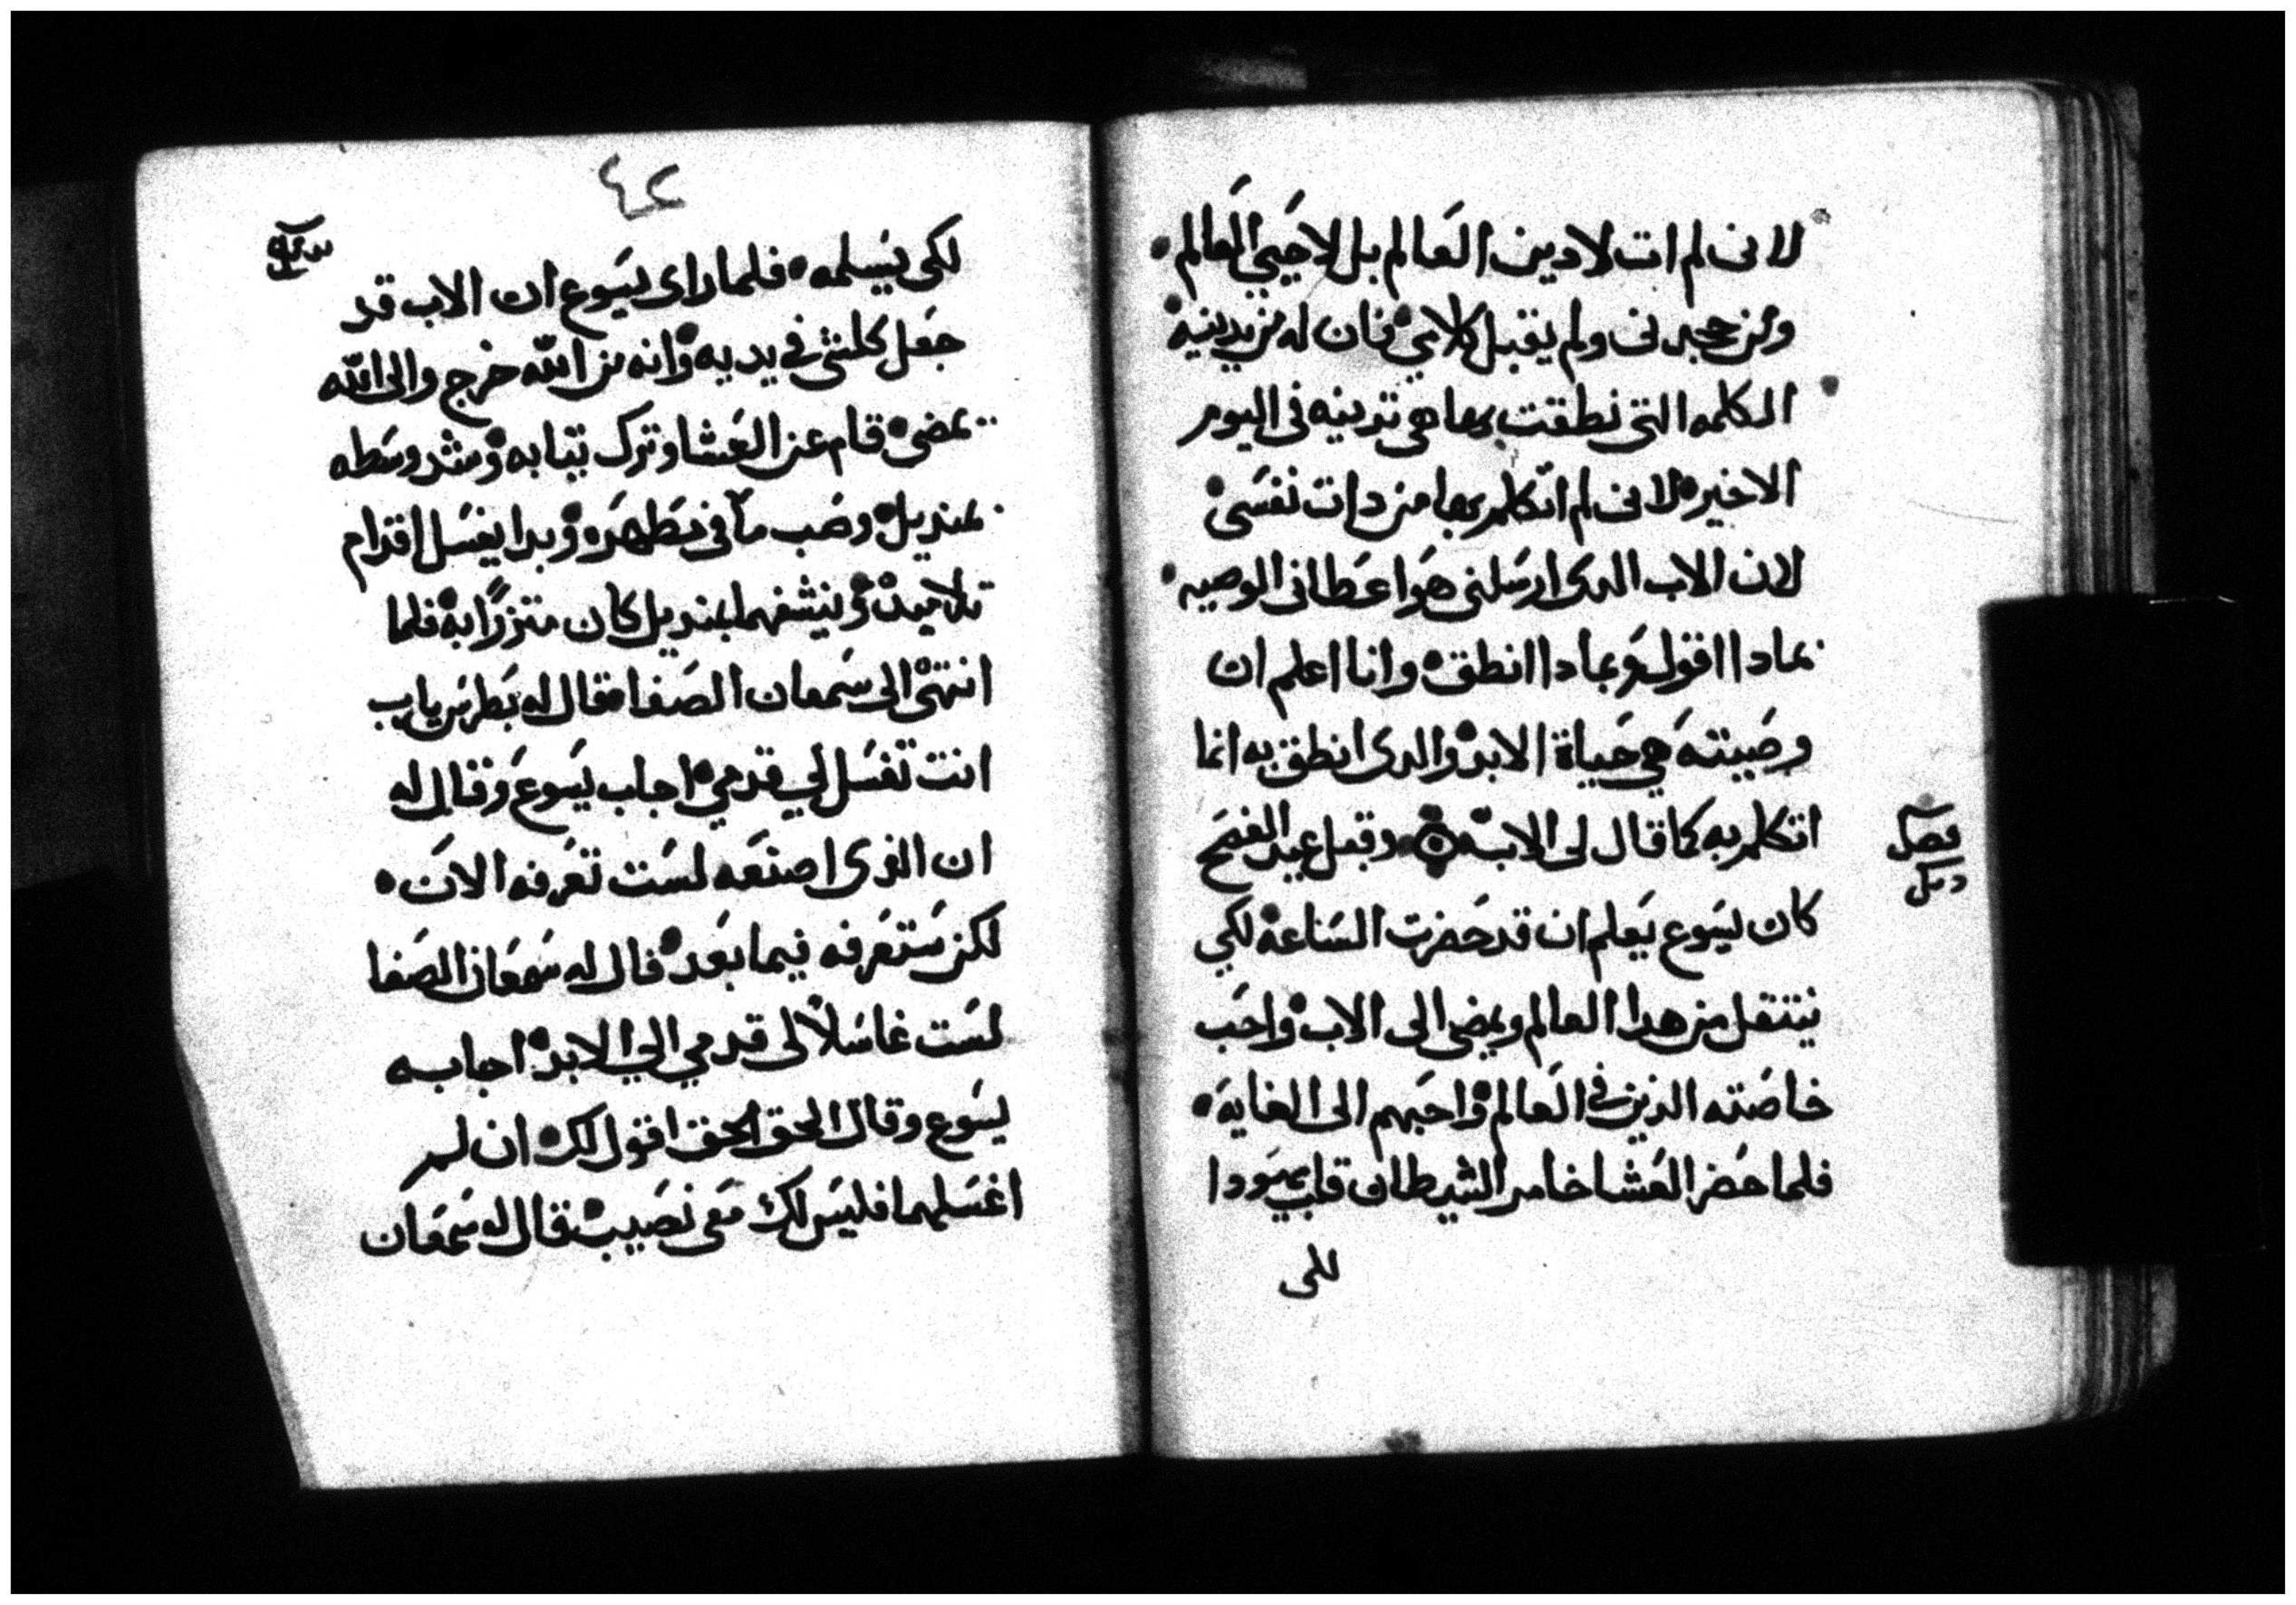 لانى لم ات لادين العالم بل لاحيي العالم
ومن جحدنى ولم يقبل كلامي فان له من يدينه
الكلمه التى نطقت بها هي تدينه فى اليوم
الاخير لانى لم اتكلم بها من دات نفسى
لان الاب الدى ارسلنى هو اعطانى الوصيه
بمادا اقول وبمادا انطق وانا اعلم ان
وصيته هي حياة الابد والدى انطق به انما
اتكلم به كما قال لى الاب وقبل عيد الفصح
فصل
كان يسوع يعلم ان قد حضرت الساعه لكي
ينتقل من هدا العالم ويمضى الى الاب واحب
خاصته الذين في العالم واحبهم الى الغايه
فلما حضر العشا خامر الشيطان قلب يهودا
للى
٤٢
لكى يسلمه فلما راى يسوع ان الاب قد
جعل كلشى في يديه وانه من الله خرج والى الله
يمضى قام عن العشا وترك تيابه وشد وسطه
بمنديل وصب مآ فى مطهره وبدا يغسل اقدام
تلاميده وينشفهما بمنديل كان متزرًا به فلما
انتهى الى سمعان الصفا فقال له بطرس يارب
انت تغسل لي قدمي اجاب يسوع وقال له
ان الذى اصنعه لست تعرفه الان
لكن ستعرفه فيما بعد قال له سمعان الصفا
لست غاسلاً لى قدمي الي الابد اجابه
يسوع وقال الحق الحق اقول لك ان لم
اغسلهما فليس لك معى نصيب قال له سمعان